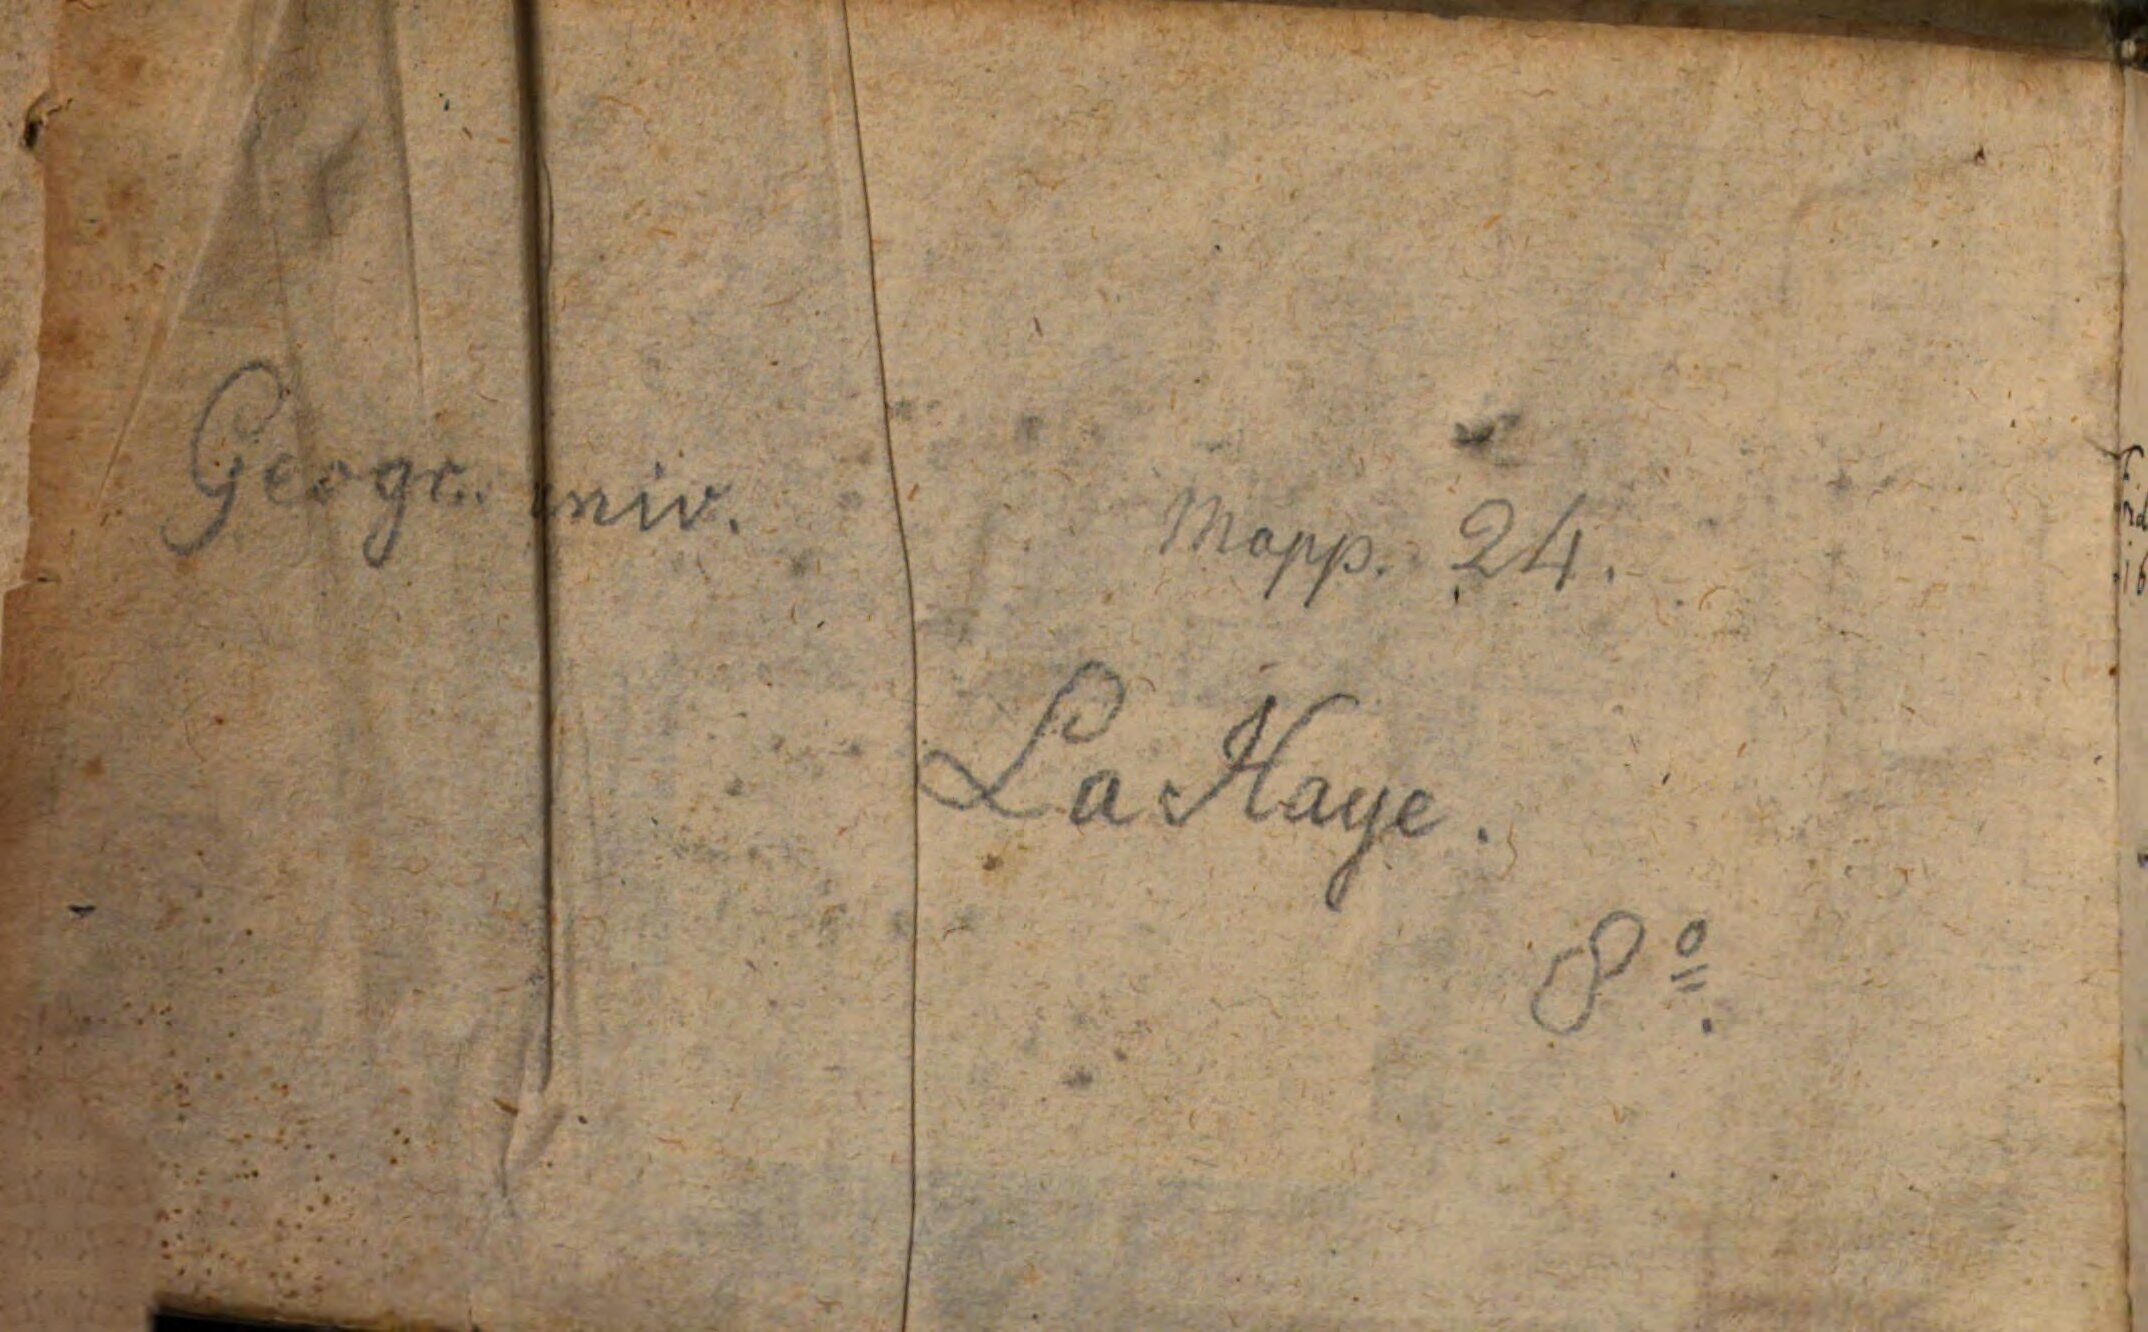 Geogr. univ. Mapp. 24.
La Haye.
8º.